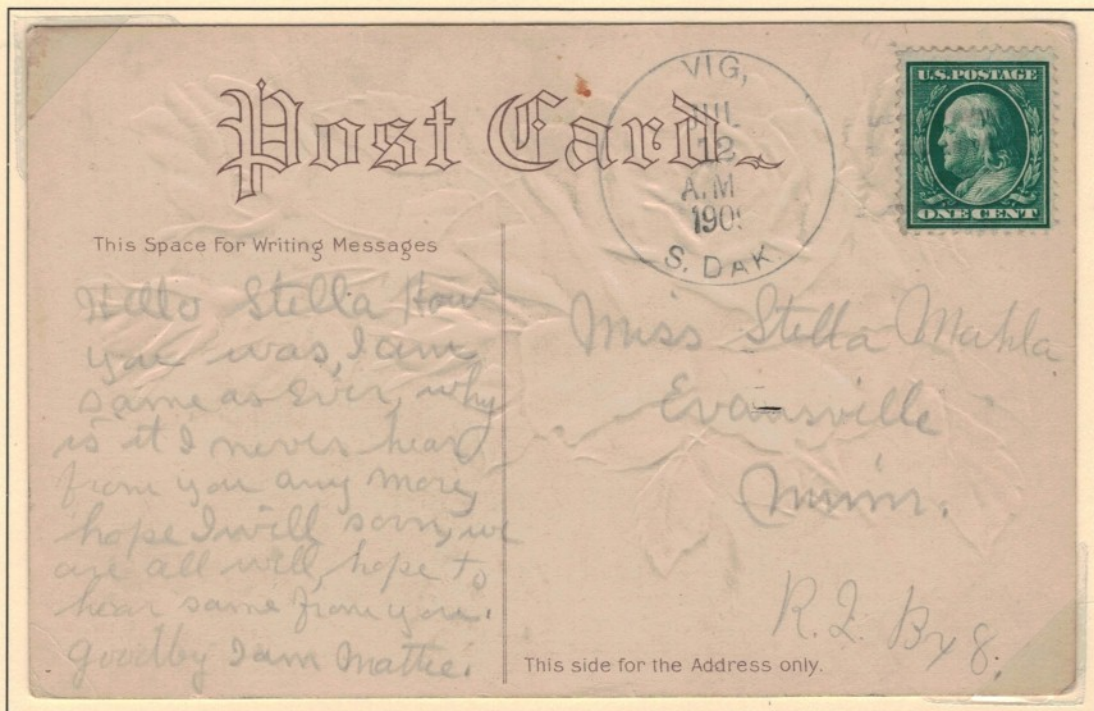 Post Card
VIG,
JUL
12
A.M
190
S. DAK.
U.S. POSTAGE
ONE CENT
This Space For Writing Messages
Hello Stella How
you was, I am
same as Ever, why
is it I never hear
from you any more,
hope I will soon, we
are all well, hope to
hear same from you.
Goodby I am Mattie.
Miss Stella Mahla
Evansville
Minn.
R.2. Bx 8.
This side for the Address only.